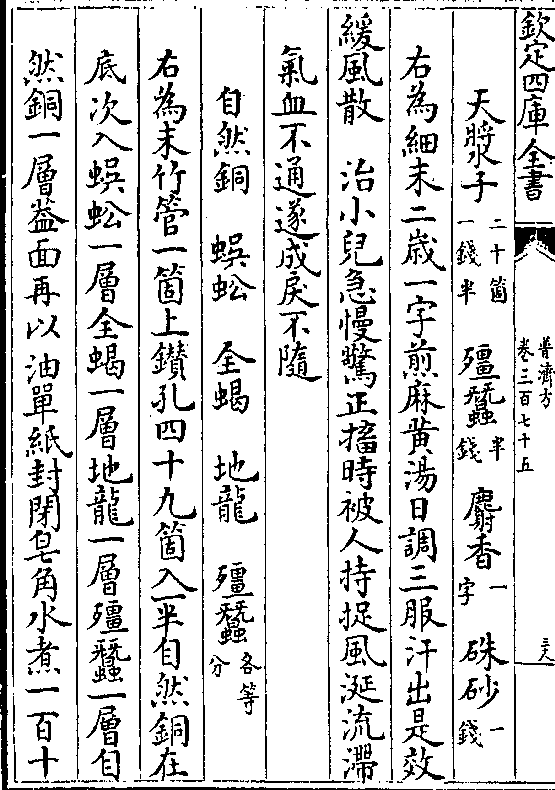 欽定四庫全書
普濟方
卷三百七十五
三
天漿子二十箇一錢半 殭蠶半錢 麝香一字 硃砂一錢
右為細末二歲一字煎麻黃湯日調三服汗出是效
緩風散 治小兒急慢驚正搐時被人持捉風涎流滯
氣血不通遂成戾不隨
自然銅 蜈蚣 全蝎 地龍 殭蠶各等分
右為末竹管一箇上鑽孔四十九箇入一半自然銅在
底次入蜈蚣一層全蝎一層地龍一層殭蠶一層自
然銅一層葢面再以油單紙封閉皂角水煮一百十